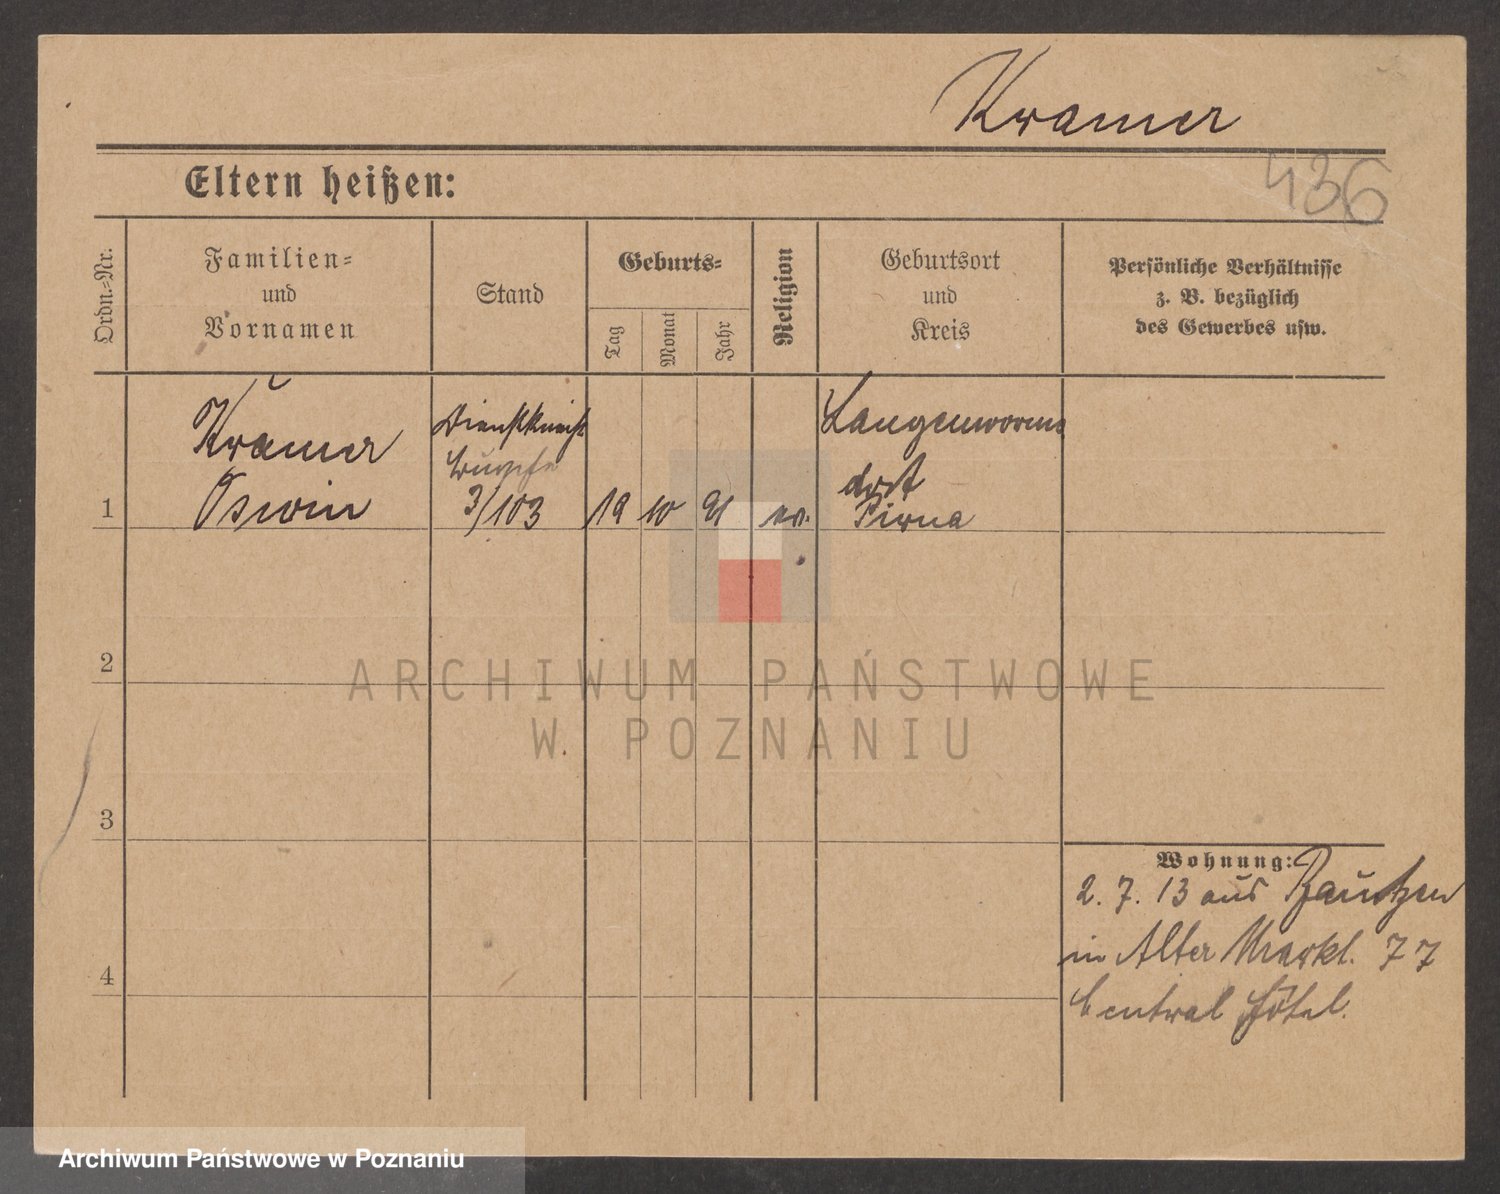 Kramer
436
Eltern heißen:
Ordn.-Nr.
Familien-
und
Vornamen
Stand
Geburts-
Tag
Monat
Jahr
Religion
Geburtsort
und
Kreis
Persönliche Verhältnisse
z. B. bezüglich
des Gewerbes usw.
1
Kramer
Oswin
Dienstknecht
3/103
19
10
91
ev.
Langenworms
dorf
Pirna
2
3
4
Wohnung:
2. 7. 13 aus Bautzen
in Alter Markt. 77
Central Hôtel.
ARCHIWUM PAŃSTWOWE
W POZNANIU
Archiwum Państwowe w Poznaniu